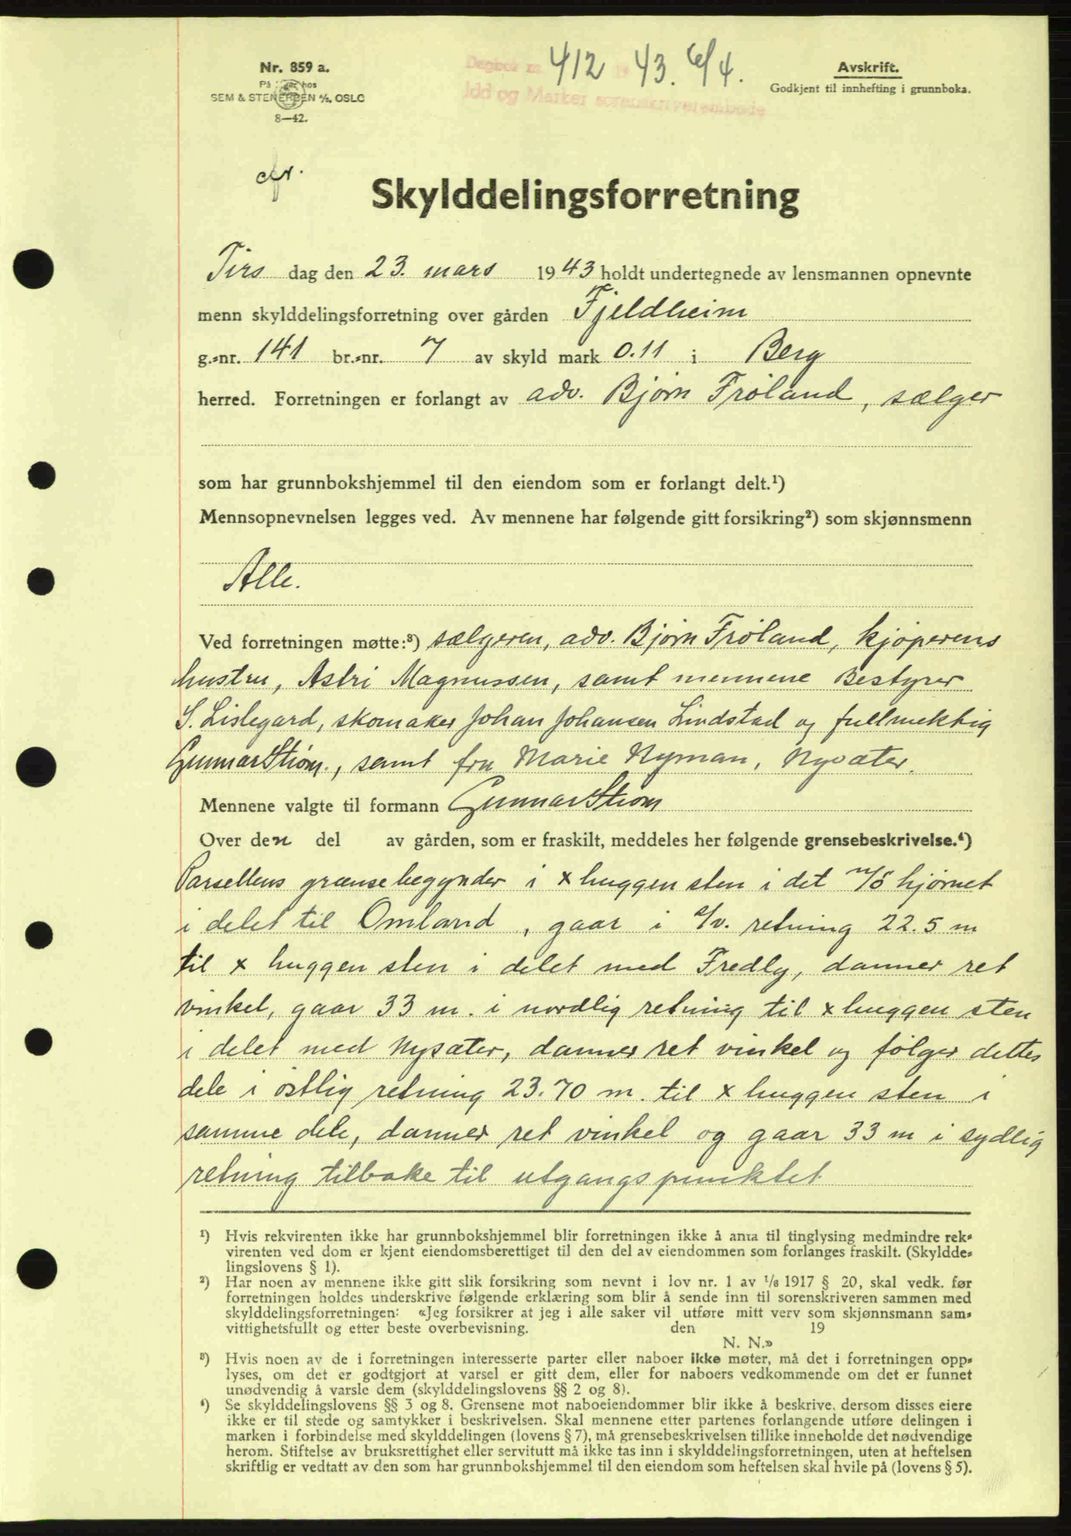 Nr. 859 a.
SEM & STENERSEN A/S, OSLO
8—42.
Dagbok nr. 412 19 43. 6/4.
Idd og Marker sorenskriverembede
Avskrift.
Godkjent til innhefting i grunnboka.
cfr.
Skylddelingsforretning
Tirs dag den 23. mars 1943 holdt undertegnede av lensmannen opnevnte
menn skylddelingsforretning over gården Fjeldheim
g.-nr. 141 br.-nr. 7 av skyld mark 0.11 i Berg
herred. Forretningen er forlangt av adv. Bjørn Frøland, sælger
som har grunnbokshjemmel til den eiendom som er forlangt delt.¹)
Mennsopnevnelsen legges ved. Av mennene har følgende gitt forsikring²) som skjønnsmenn
Alle.
Ved forretningen møtte:³) sælgeren, adv. Bjørn Frøland, kjøperens
hustru, Astri Magnussen, samt mennene Bestyrer
S. Lislegard, skomaker Johan Johansen Lindstad og fullmektig
Gunnar Strøm., samt fru Marie Nyman, Nysæter.
Mennene valgte til formann Gunnar Strøm
Over den del av gården, som er fraskilt, meddeles her følgende grensebeskrivelse.⁴)
Parsellens grænse begynder i x huggen sten i det n/ø hjørnet
i delet til Omland, gaar i s/v. retning 22.5 m
til x huggen sten i delet med Fredly, danner ret
vinkel, gaar 33 m. i nordlig retning til x huggen sten
i delet med Nysæter, danner ret vinkel og følger dettes
dele i østlig retning 23.70 m. til x huggen sten i
samme dele, danner ret vinkel og gaar 33 m i sydlig
retning tilbake til utgangspunktet
¹) Hvis rekvirenten ikke har grunnbokshjemmel blir forretningen ikke å anta til tinglysing medmindre rek-
virenten ved dom er kjent eiendomsberettiget til den del av eiendommen som forlanges fraskilt. (Skyldde-
lingslovens § 1).
²) Har noen av mennene ikke gitt slik forsikring som nevnt i lov nr. 1 av 1/6 1917 § 20, skal vedk. før
forretningen holdes underskrive følgende erklæring som blir å sende inn til sorenskriveren sammen med
skylddelingsforretningen: «Jeg forsikrer at jeg i alle saker vil utføre mitt verv som skjønnsmann sam-
vittighetsfullt og etter beste overbevisning. den 19
N. N.»
³) Hvis noen av de i forretningen interesserte parter eller naboer ikke møter, må det i forretningen opp-
lyses, om det er godtgjort at varsel er gitt dem, eller for naboers vedkommende om det er funnet
unødvendig å varsle dem (skylddelingslovens §§ 2 og 8).
⁴) Se skylddelingslovens §§ 3 og 8. Grensene mot naboeiendommer blir ikke å beskrive, dersom disses eiere
ikke er til stede og samtykker i beskrivelsen. Skal mennene etter partenes forlangende utføre delingen i
marken i forbindelse med skylddelingen (lovens § 7), må grensebeskrivelsen tillike inneholde det nødvendige
herom. Stiftelse av bruksrettighet eller servitutt må ikke tas inn i skylddelingsforretningen, uten at heftelsen
skriftlig er vedtatt av den som har grunnbokshjemmel til den eiendom som heftelsen skal hvile på (lovens § 5).